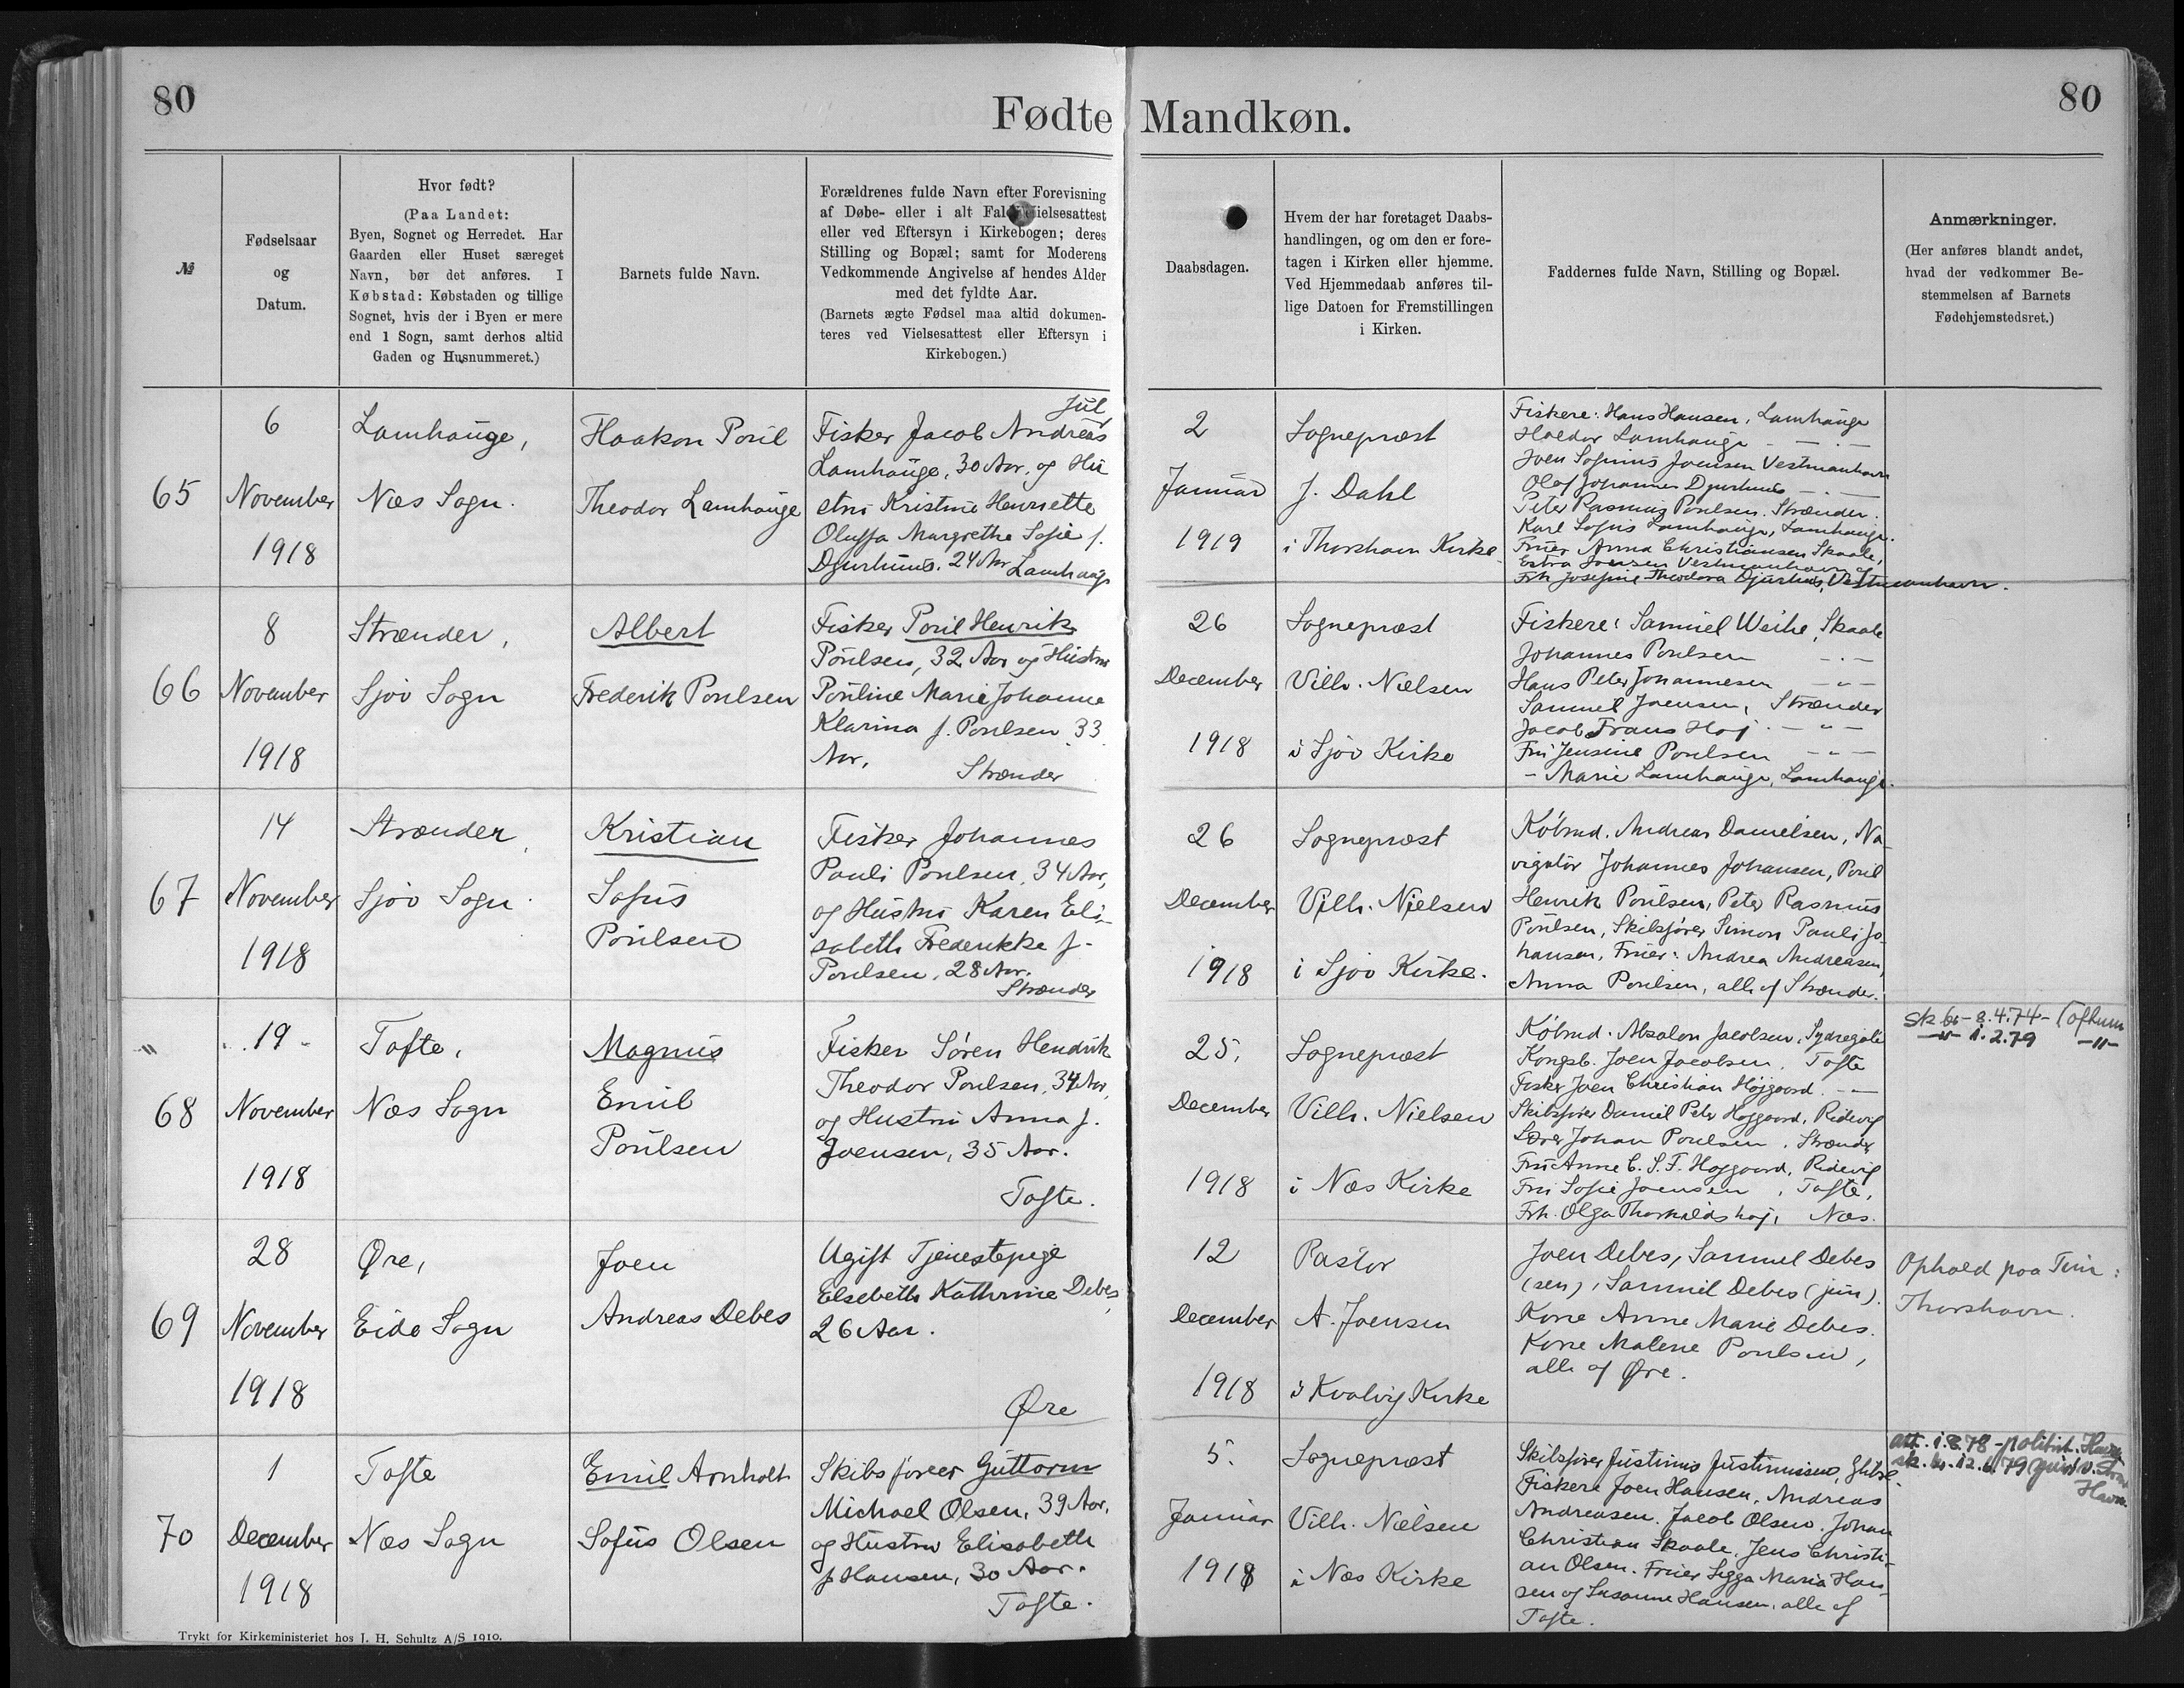 80
80
Fødte Mandkøn.
№
Fødselsaar
og
Datum.
Hvor født?
(Paa Landet:
Byen, Sognet og Herredet. Har
Gaarden eller Huset særeget
Navn, bør det anføres. I
Købstad: Købstaden og tillige
Sognet, hvis der i Byen er mere
end 1 Sogn, samt derhos altid
Gaden og Husnummeret.)
Barnets fulde Navn.
Forældrenes fulde Navn efter Forevisning
af Døbe- eller i alt Fald Vielsesattest
eller ved Eftersyn i Kirkebogen; deres
Stilling og Bopæl; samt for Moderens
Vedkommende Angivelse af hendes Alder
med det fyldte Aar.
(Barnets ægte Fødsel maa altid dokumen-
teres ved Vielsesattest eller Eftersyn i
Kirkebogen.)
Daabsdagen.
Hvem der har foretaget Daabs-
handlingen, og om den er fore-
tagen i Kirken eller hjemme.
Ved Hjemmedaab anføres til-
lige Datoen for Fremstillingen
i Kirken.
Faddernes fulde Navn, Stilling og Bopæl.
Anmærkninger.
(Her anføres blandt andet,
hvad der vedkommer Be-
stemmelsen af Barnets
Fødehjemstedsret.)
65
6
November
1918
Lamhauge,
Næs Sogn.
Haakon Poul
Theodor Lamhauge
Jul
Fisker Jacob Andreas
Lamhauge, 30 Aar, og Hu
stru Kristine Henriette
Oluffa Margrethe Sofie f.
Djurhuus. 24 Aar Lamhauge
2
Januar
1919
Sognepræst
J. Dahl
i Thorshavn Kirke
Fiskere: Hans Hansen, Lamhauge
Haldor Lamhauge — . —
Joen Sofinus Joensen Vestmanhavn
Olaf Johannes Djurhuus — . —
Peter Rasmus Poulsen. Strænder.
Karl Sofus Lamhauge, Lamhauge.
Fruer Anna Christiansen Skaale,
Joensen Vestmanhavn og
Frk Josefine Theodora Djurhuus, Vestmanhavn.
66
8
November
1918
Strænder,
Sjov Sogn
Albert
Frederik Poulsen
Fisker Poul Henrik
Poulsen, 32 Aar og Hustru
Pouline Marie Johanne
Klarina f. Poulsen 33
Aar.
Strænder
26
December
1918
Sognepræst
Vilh. Nielsen
i Sjov Kirke
Fiskere: Samuel Weihe, Skaale
Johannes Poulsen — . —
Hans Peter Johannesen — " —
Samuel Joensen, Strænder
Jacob Frans Høj. — " —
Fru Jensine Poulsen — " —
- Marie Lamhauge, Lamhauge.
67
14
November
1918
Strænder,
Sjov Sogn
Kristian
Sofus
Poulsen
Fisker Johannes
Pauli Poulsen, 34 Aar,
og Hustru Karen Eli-
sabeth Frederikke f.
Poulsen, 28 Aar.
Strænder
26
December
1918
Sognepræst
Vilh. Nielsen
i Sjov Kirke.
Købmd. Andreas Danielsen, Na-
vigatør Johannes Johansen, Poul
Henrik Poulsen, Peter Rasmus
Poulsen, Skibsfører Simon Pauli Jo-
hansen, Fruer: Andrea Andreasen,
Anna Poulsen, alle af Strænder.
"
68
19
November
1918
Tofte,
Næs Sogn
Magnus
Emil
Poulsen
Fisker Søren Hendrik
Theodor Poulsen, 34 Aar,
og Hustru Anna f.
Joensen, 35 Aar.
Tofte.
25.
December
1918
Sognepræst
Vilh. Nielsen
i Næs Kirke
Købmd. Absalon Jacobsen, Sydregøte
Kongsb. Joen Jacobsen, Tofte
Fisker Joen Christian Højgaard. —"—
Skibsfører Daniel Peter Højgaard, Ridevig
Lærer Johan Poulsen, Strænder
Fru Anne C. S. F. Højgaard, Ridevig
Fru Sofie Joensen, Tofte,
Frk. Olga Thorkildshøj, Næs.
sk.bo - 8.4.74 - Toftum
—"— 1.2.79 —"—
69
28
November
1918
Øre,
Eide Sogn
Joen
Andreas Debes
Ugift Tjenestepige
Elsebeth Kathrine Debes,
26 Aar.
Øre
12
December
1918
Pastor
A. Joensen
i Kvalvig Kirke
Joen Debes, Samuel Debes
(sen), Samuel Debes (jun).
Kone Anne Marie Debes.
Kone Malene Poulsen,
alle af Øre.
Ophold paa Tim:
Thorshavn.
70
1
December
1918
Tofte
Næs Sogn
Emil Arnholt
Sofus Olsen
Skibsfører Guttorm
Michael Olsen, 39 Aar,
og Hustru Elisabeth
f. Hansen, 30 Aar.
Tofte.
5.
Januar
1918
Sognepræst
Vilh. Nielsen
i Næs Kirke
Skibsfører Justinus Justinussen,
Fiskere Joen Hansen, Andreas
Andreasen. Jacob Olsen. Johan
Christian Skaale. Jens Christi-
an Olsen. Fruer Sigga Maria Han-
sen og Susanne Hansen, alle af
Tofte.
att. 1.8.78 - politist. Havn
sk. bo. 12.6.79
Havn.
Trykt for Kirkeministeriet hos J. H. Schultz A/S 1910.